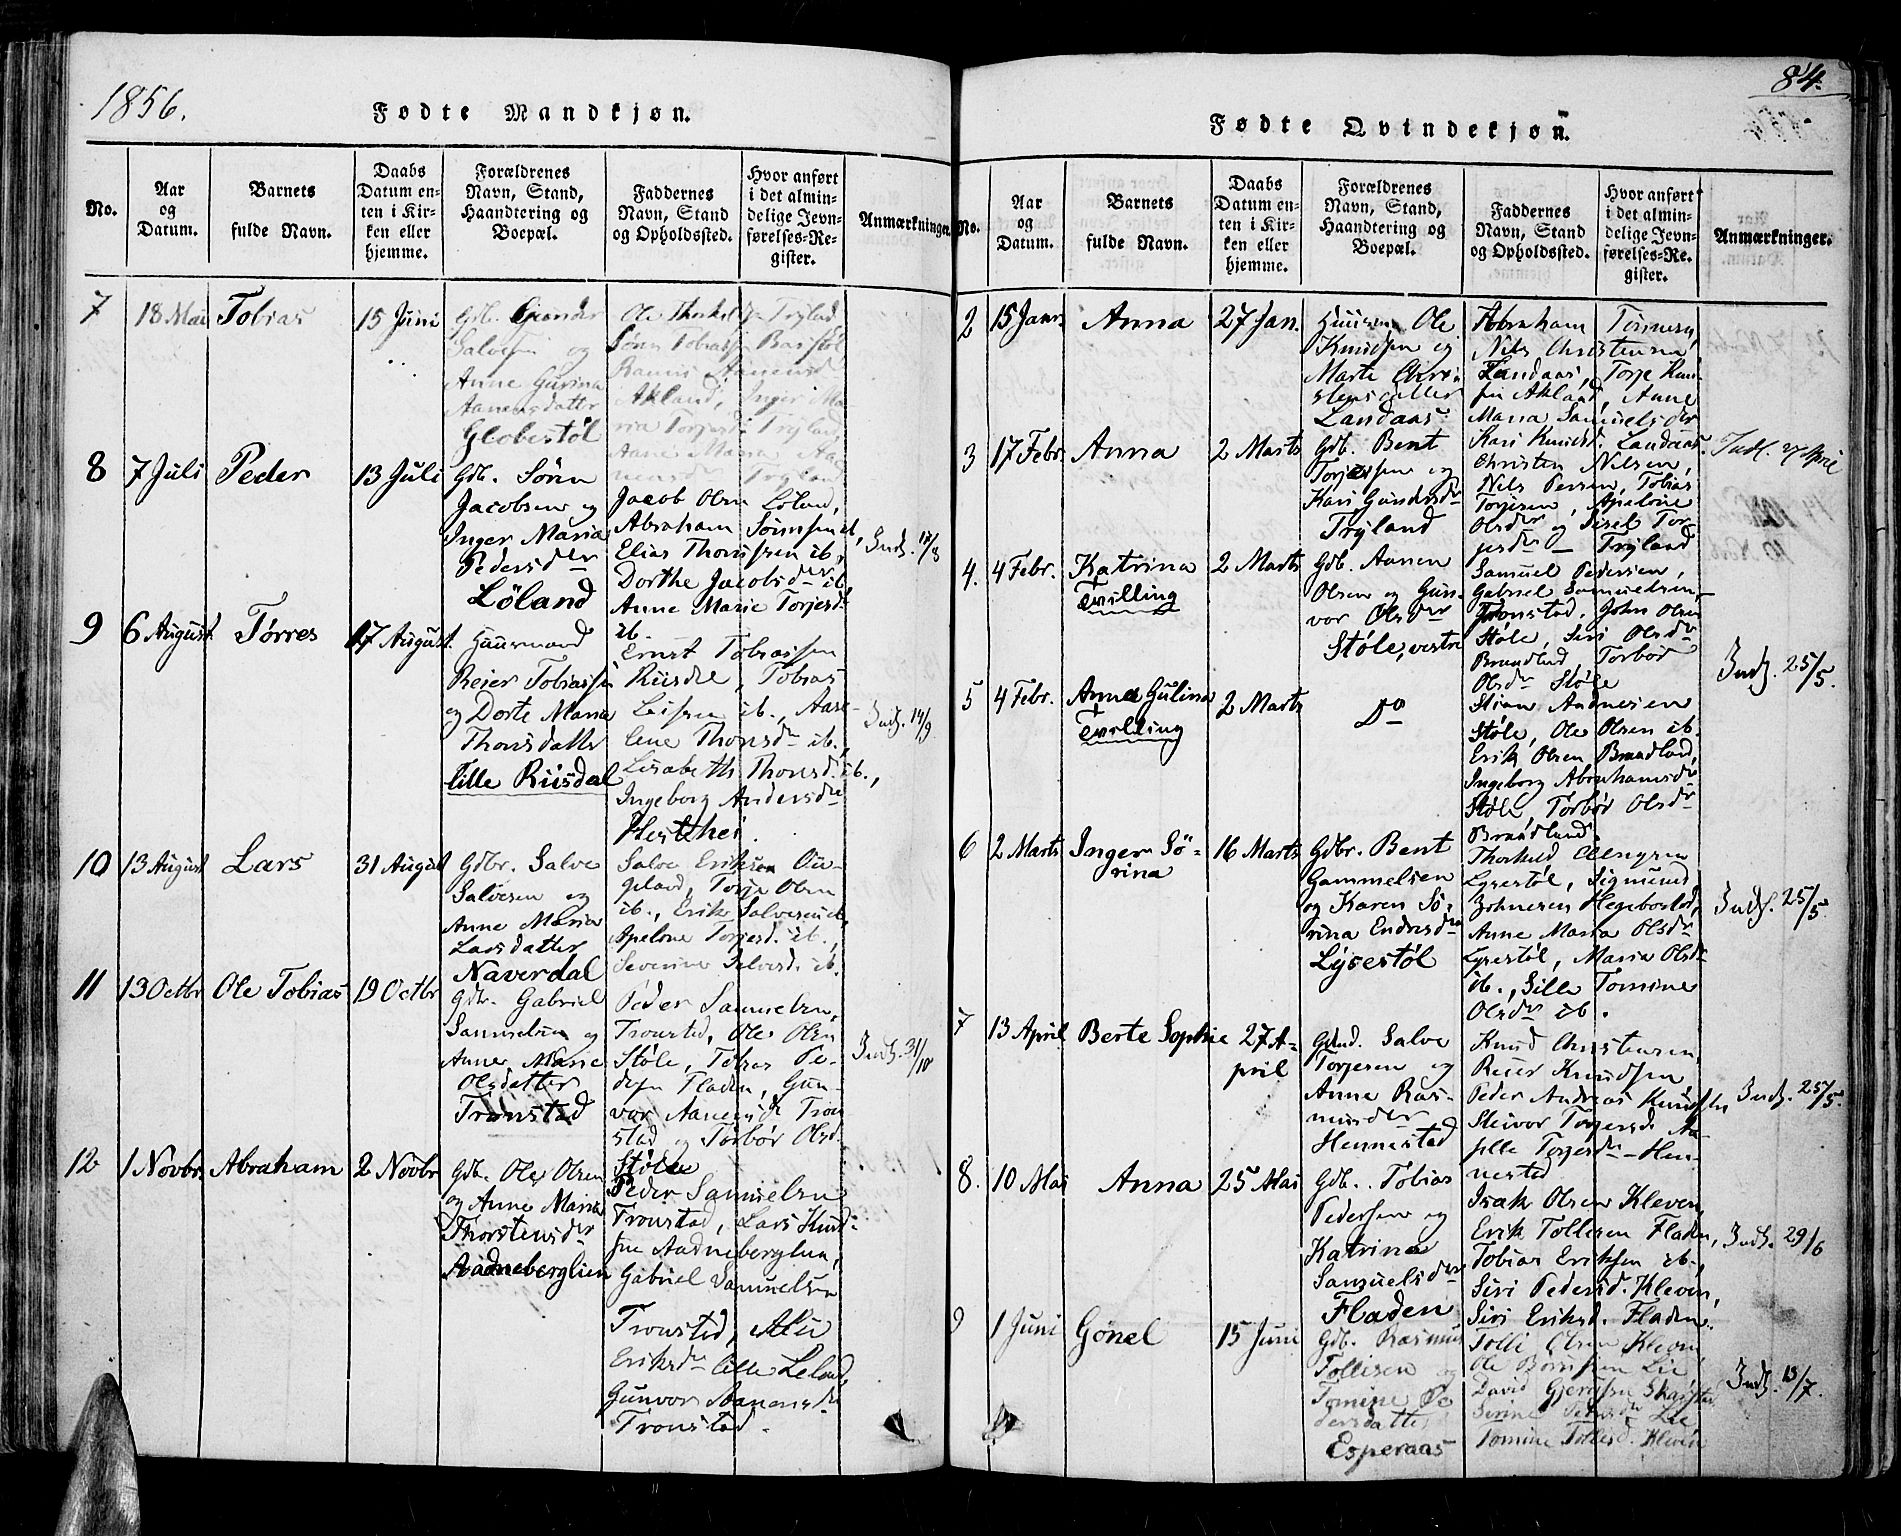 1856.
Fødte Mandkjøn.
No.
Aar og Datum.
Barnets fulde Navn.
Daabs Datum enten i Kirken eller hjemme.
Forældrenes Navn, Stand, Haandtering og Boepæl.
Faddernes Navn, Stand og Opholdssted.
Hvor anført i det almindelige Jevnførelses-Register.
Anmærkninger.
7
18 Mai
Tobias
15 Juni
Gdb. Gunder
Salvesen og
Anne Gurina
Aanensdatter
Globestøl
Ole Thorkels Tryland
Sønn Tobiassen Barstøl
Aanensd
Akland, Inger Ma-
ria Torjesd. Tryland,
Aane Maria Aa-
nensd Tryland
8
7 Juli
Peder
13 Juli
Gdb. Sønn
Jacobsen og
Inger Maria
Pedersdr
Løland
Jacob Olsen Løland,
Abraham Sønnsen ib,
Elias Thomssen ib.,
Dorthe Jacobsdr ib.
Anne Marie Torjesdr
ib.
Indf. 17/8
9
6 August
Tørres
17 August
Huusmand
Reier Tobiassen
og Dorte Maria
Thonsdatter
Lille Riisdal
Ernst Tobiassen
Riisdal, Tobias
ib., Aase-
lene Thonsdr ib.,
Lisabeth Thonsd. ib.,
Ingeborg Andersdr
Hesthei.
Indf. 14/9
10
13 August
Lars
31 August
Gdbr. Salve
Salvesen og
Anne Maria
Larsdatter
Naverdal
Salve Eriksen Ou-
geland, Torje Olsen
ib., Erik Salvesen ib,
Apelone Torjesd. ib.,
Severine Salvesd. ib.
11
13 Octbr
Ole Tobias
19 Octbr
Gdbr. Gabriel
Samuelsen og
Anne Marie
Olsdatter
Tronstad
Peder Samuelsen,
Tronstad, Ole Olsen
Støle, Tobias Pe-
dersen Fladen, Gun-
vor Aanensdr Tron
stad og Torbør Olsd.
Støle
Indf. 31/10
12
1 Novbr.
Abraham
2 Novbr
Gdb. Ole Olsen
og Anne Maria
Thorstensdr
Aadneberglien
Peder Samuelsen
Tronstad, Lars Knud-
sen Aadneberglien,
Gabriel Samuelsen
Tronstad,
Eriksdr Lille Leland,
Gunvor Aanensdr
Tronstad.
84.
Fødte Qvindekjøn.
No.
Aar og Datum.
Barnets fulde Navn.
Daabs Datum enten i Kirken eller hjemme.
Forældrenes Navn, Stand, Haandtering og Boepæl.
Faddernes Navn, Stand og Opholdssted.
Hvor anført i det almindelige Jevnførelses-Register.
Anmærkninger.
2
15 Janr.
Anna
27 Jan.
Huusm. Ole
Knudsen og
Marte Chri-
stensdatter
Landaas
Abraham
Nils Christensen
Landaas, Torje Knud-
sen Akland, Anne
Maria Samuelsdr
Kari Knudsd. Landaas.
3
17 Febr.
Anna
2 Marts
Gdb. Bent
Torjessen og
Kari Gundersdr
Tryland
Christen Nilsen,
Nils Persen, Tobias
Torjesen, Apelone
Olsdr og Sisel Tor-
jesdr – Tryland
Indf. 27 April
4.
4 Febr.
Katrina
Tvilling
2 Marts
Gdb. Aanen
Olsen og Gun-
vor Olsdr
Støle, vestre
Samuel Pedersen,
Gabriel Samuelsen,
Tronstad, John Olsen
Støle, Siri Olsdr
Brandland, Torbør
Olsdr Støle
Indf. 25/5.
5
4 Febr.
Anne Gulina
Tvilling
2 Marts
Do
Stian Andersen
Støle, Ole Olsen ib.
Erik Olsen Brandland,
Ingeborg Abrahamsdr
Støle Torbør Olsdr
Brandland.
6
2 Marts
Inger Sø-
rina
16 Marts
Gdbr. Bent
Gammelsen
og Karen Sø-
rina Endresdr
Lysestøl
Thorkild
Lysestøl, Sigmund
Johnesen Hegebostad,
Anne Maria Olsdr
Lysestøl, Maria Olsdr
ib., Sille Tomine
Olsdr ib.
Indf. 25/5.
7
13 April
Berte Sophie
27 A-
pril
Gmd. Salve
Torjesen og
Anne Ras-
musdr
Hennestad
Knud Christensen,
Reier Knudsen
Peder Andreas Knudsen
Steivor Torjesdr
Torjesdr – Hen-
nestad
Indf. 25/5.
8.
10 Mai
Anna
25 Mai
Gdb. Tobias
Pedersen og
Katrina
Samuelsdr
Fladen
Isak Olsen Kleven,
Erik Tollisen Fladen,
Tobias Eriksen ib.,
Siri Pedersd. Kleven,
Siri Eriksd. Fladen
Indf. 29/6
9
1 Juni
Gønel
15 Juni
Gdb. Rasmus
Tollisen og
Tomine Pe
dersdatter
Esperaas
Tolli Olsen Kleven
Ole Lie
David Gjerulfsen
Serine Pedersdr Lie
Tomine Tollisd. Kleven
Indf. 13/7.